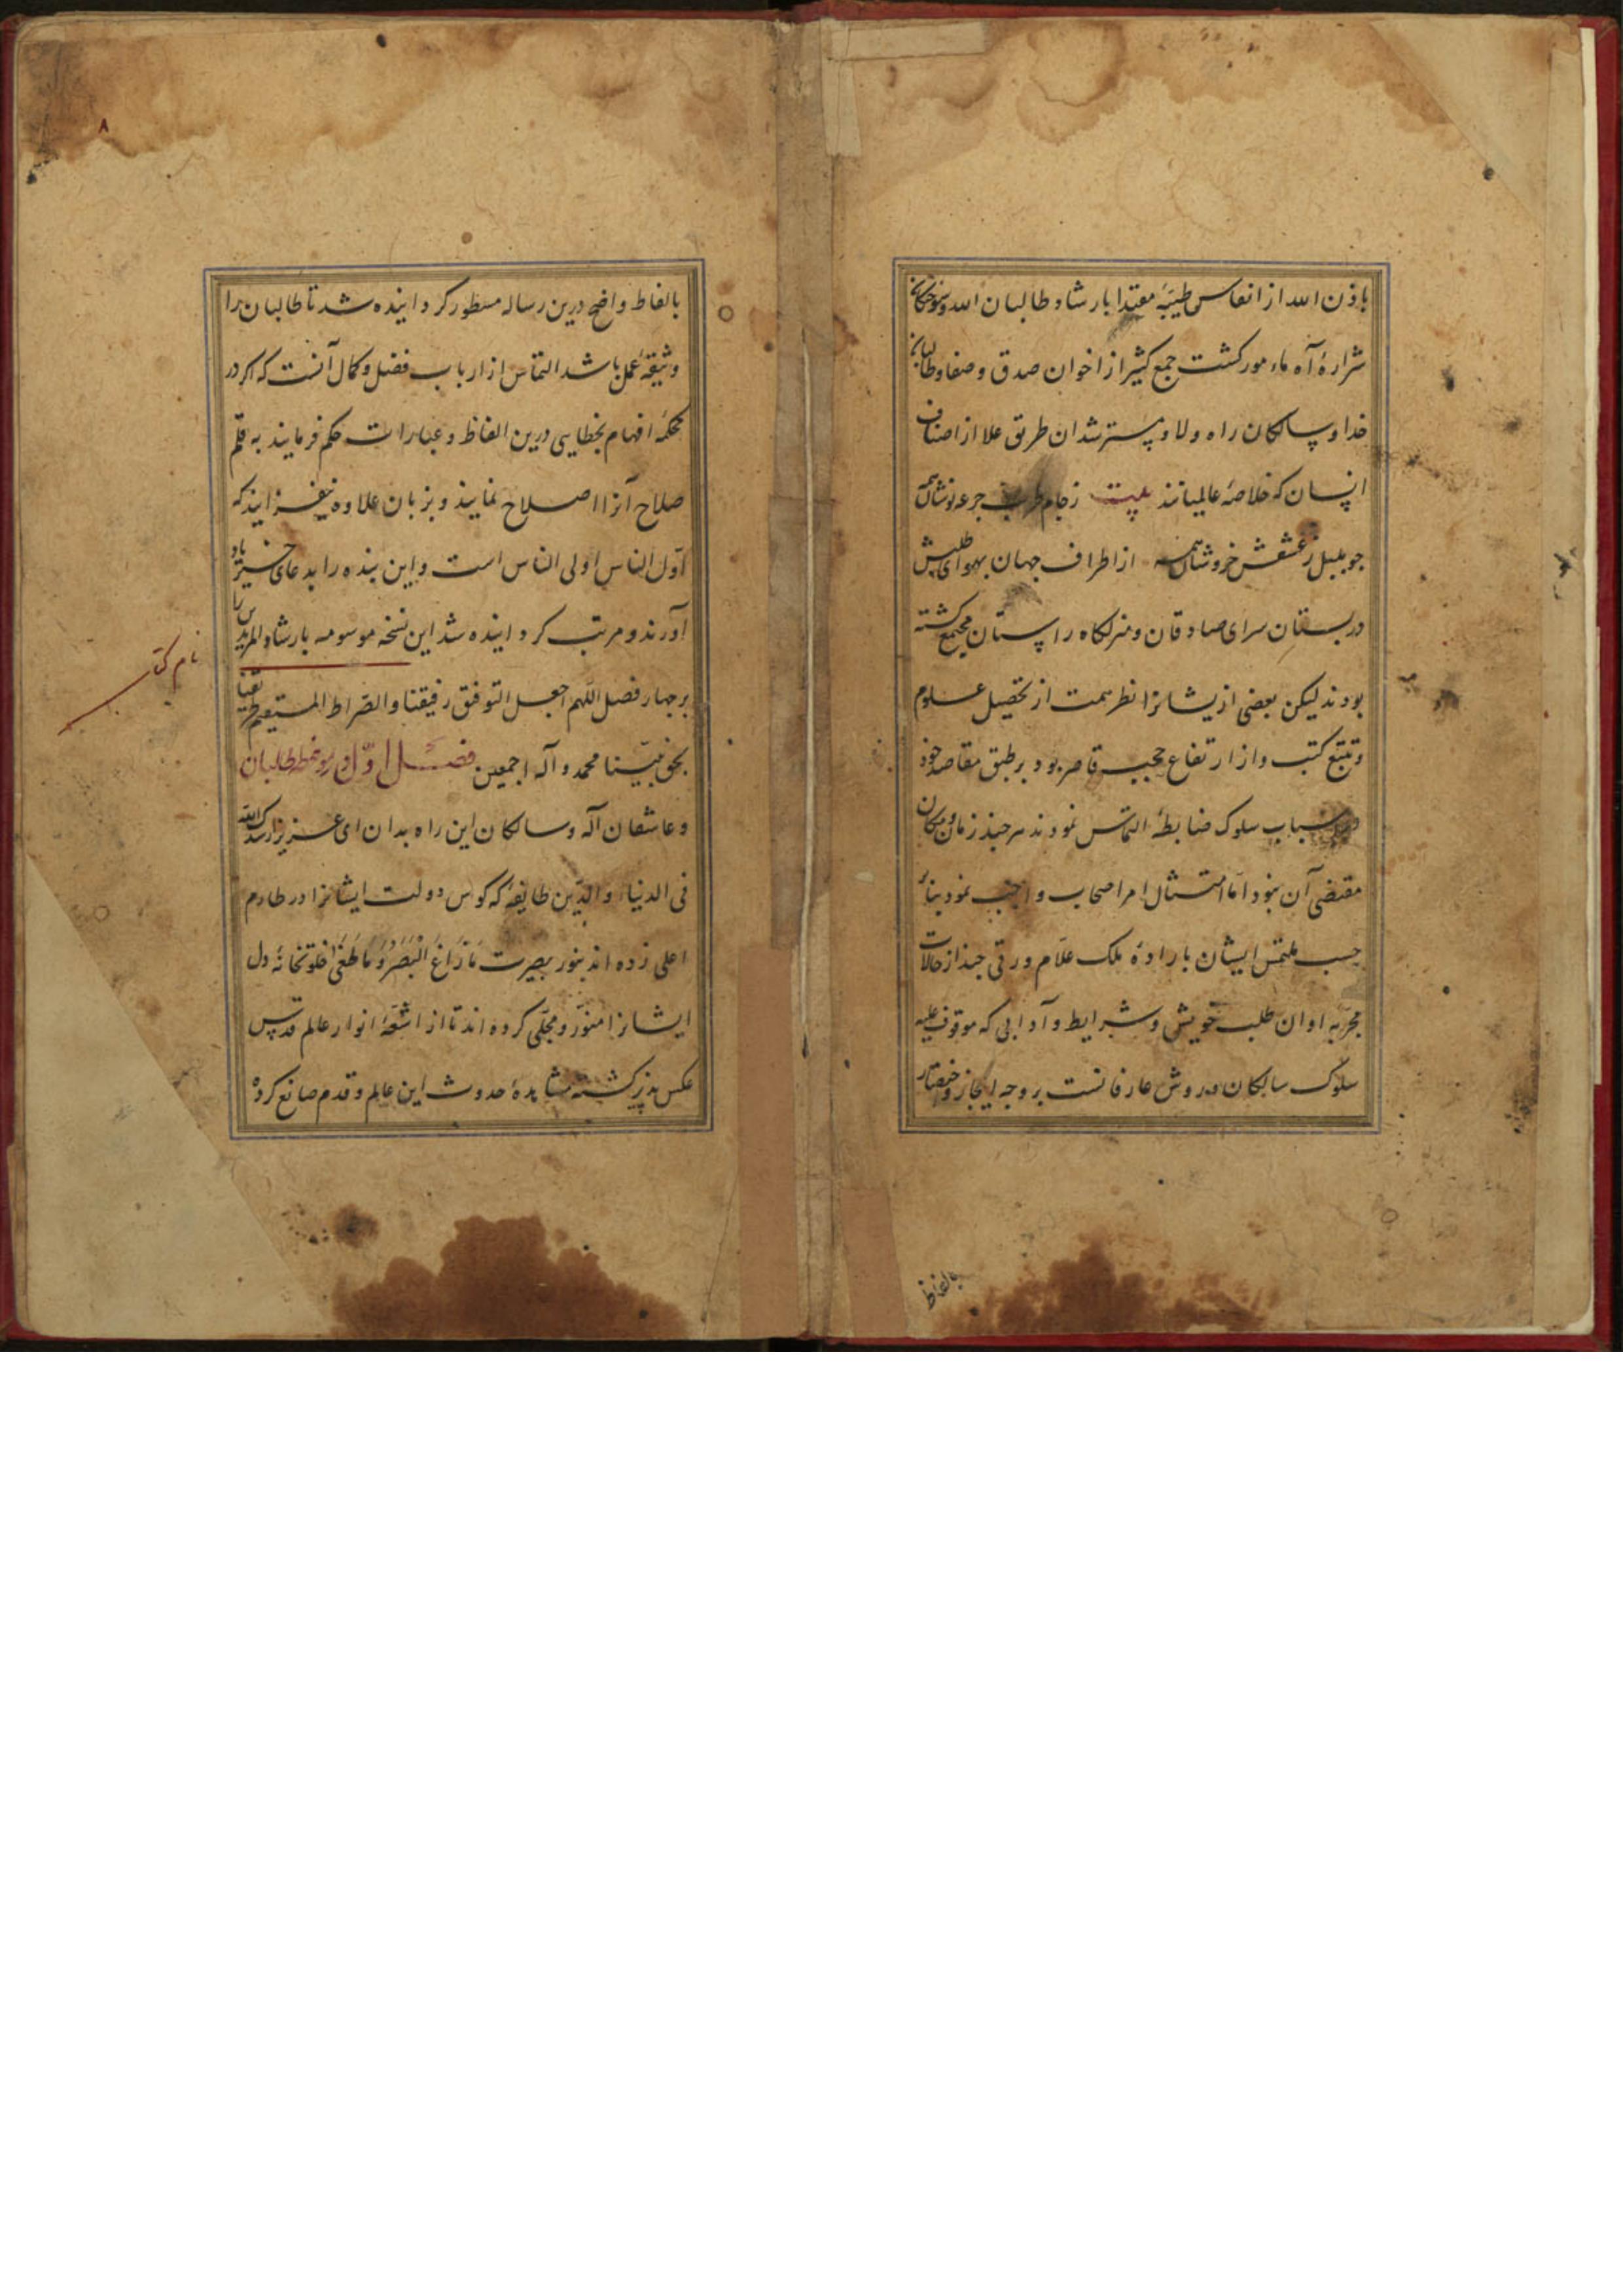 باذن الله از انفاس طیبهٔ مقتدا بارشاد طالبان الله و سوختکان
شرارهٔ آه مامور کشت جمع کثیر از اخوان صدق و صفا و طالبان
خدا و سالکان راه ولا و مسترشدان طریق علا از اصناف
انسان که خلاصهٔ عالمیانند بیت ز جام طرب جرعه نوشان همه
چو بلبل ز عشقش خروشان همه از اطراف جهان بهوای طلبش
در بستان سرای صادقان و منزلکاه راستان مجتمع کشته
بودند لیکن بعضی ازیشانرا نظر همت از تحصیل علوم
و تتبع کتب و از ارتفاع حجب قاصر بود بر طبق مقاصد خود
اسباب سلوک ضابطهٔ التماس نمودند هر چند زمان و مکان
مقتضی آن نبود اما امتثال امر اصحاب واجب نمود بنابر
حسب ملتمس ایشان بارادهٔ ملک علّام ورقی چند از حالات
مجرّبه اوان طلب خویش و شرایط و آدابی که موقوف علیه
سلوک سالکان و روش عارفانست بر وجه ایجاز و اختصار
بالفاظ
۸
بالفاظ واضح درین رساله مسطور کردانیده شد تا طالبان را
وثیقهٔ عمل باشد التماس از ارباب فضل و کمال آنست که اکر در
محکمهٔ افهام بخطایی درین الفاظ و عبارات حکم فرمایند به قلم
صلاح آنرا اصلاح نمایند و بزبان علاوه نیفزایند که
اوّل الناس اولی الناس است و این بنده را بدعای خیر یاد
آورند و مرتب کردانیده شد این نسخه موسومه بارشاد المریدین را
نام کتاب
بر چهار فصل اللهم اجعل التوفیق رفیقنا و الصّراط المستقیم طریقنا
بحق نبیّنا محمد و آله اجمعین فصل اوّل در طالبان
و عاشقان آله و سالکان این راه بدان ای عزیز ارشدک الله
فی الدنیا و الدّین طایفهٔ که کوس دولت ایشانرا در طارم
اعلی زده اند بنور بصیرت مَا زَاغَ الْبَصَرُ وَ مَا طَغَىٰ خلوتخانهٔ دل
ایشانرا منوّر و مجلّی کرده اند تا از اشعّهٔ انوار عالم قدس
عکس پذیر کشته مشاهدهٔ حدوث این عالم و قدم صانع کرده